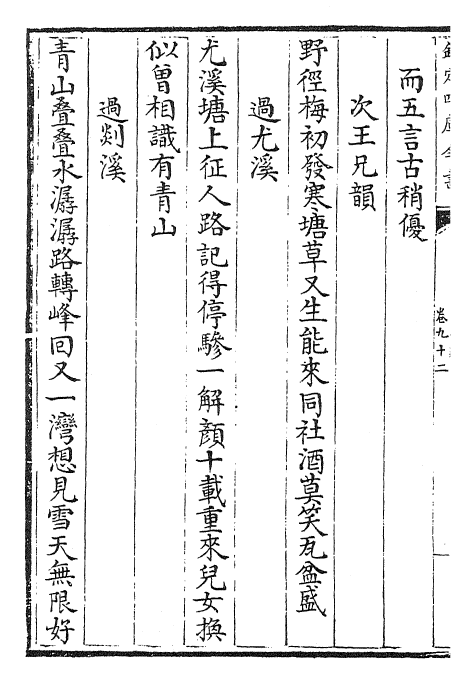 欽定四庫全書
卷九十二
而五言古稍優
次王兄韻
野徑梅初發寒塘草又生能來同社酒莫笑瓦盆盛
過尤溪
尤溪塘上征人路記得停驂一解顏十載重來兒女換
似曾相識有青山
過剡溪
青山疊疊水潺潺路轉峰回又一灣想見雪天無限好